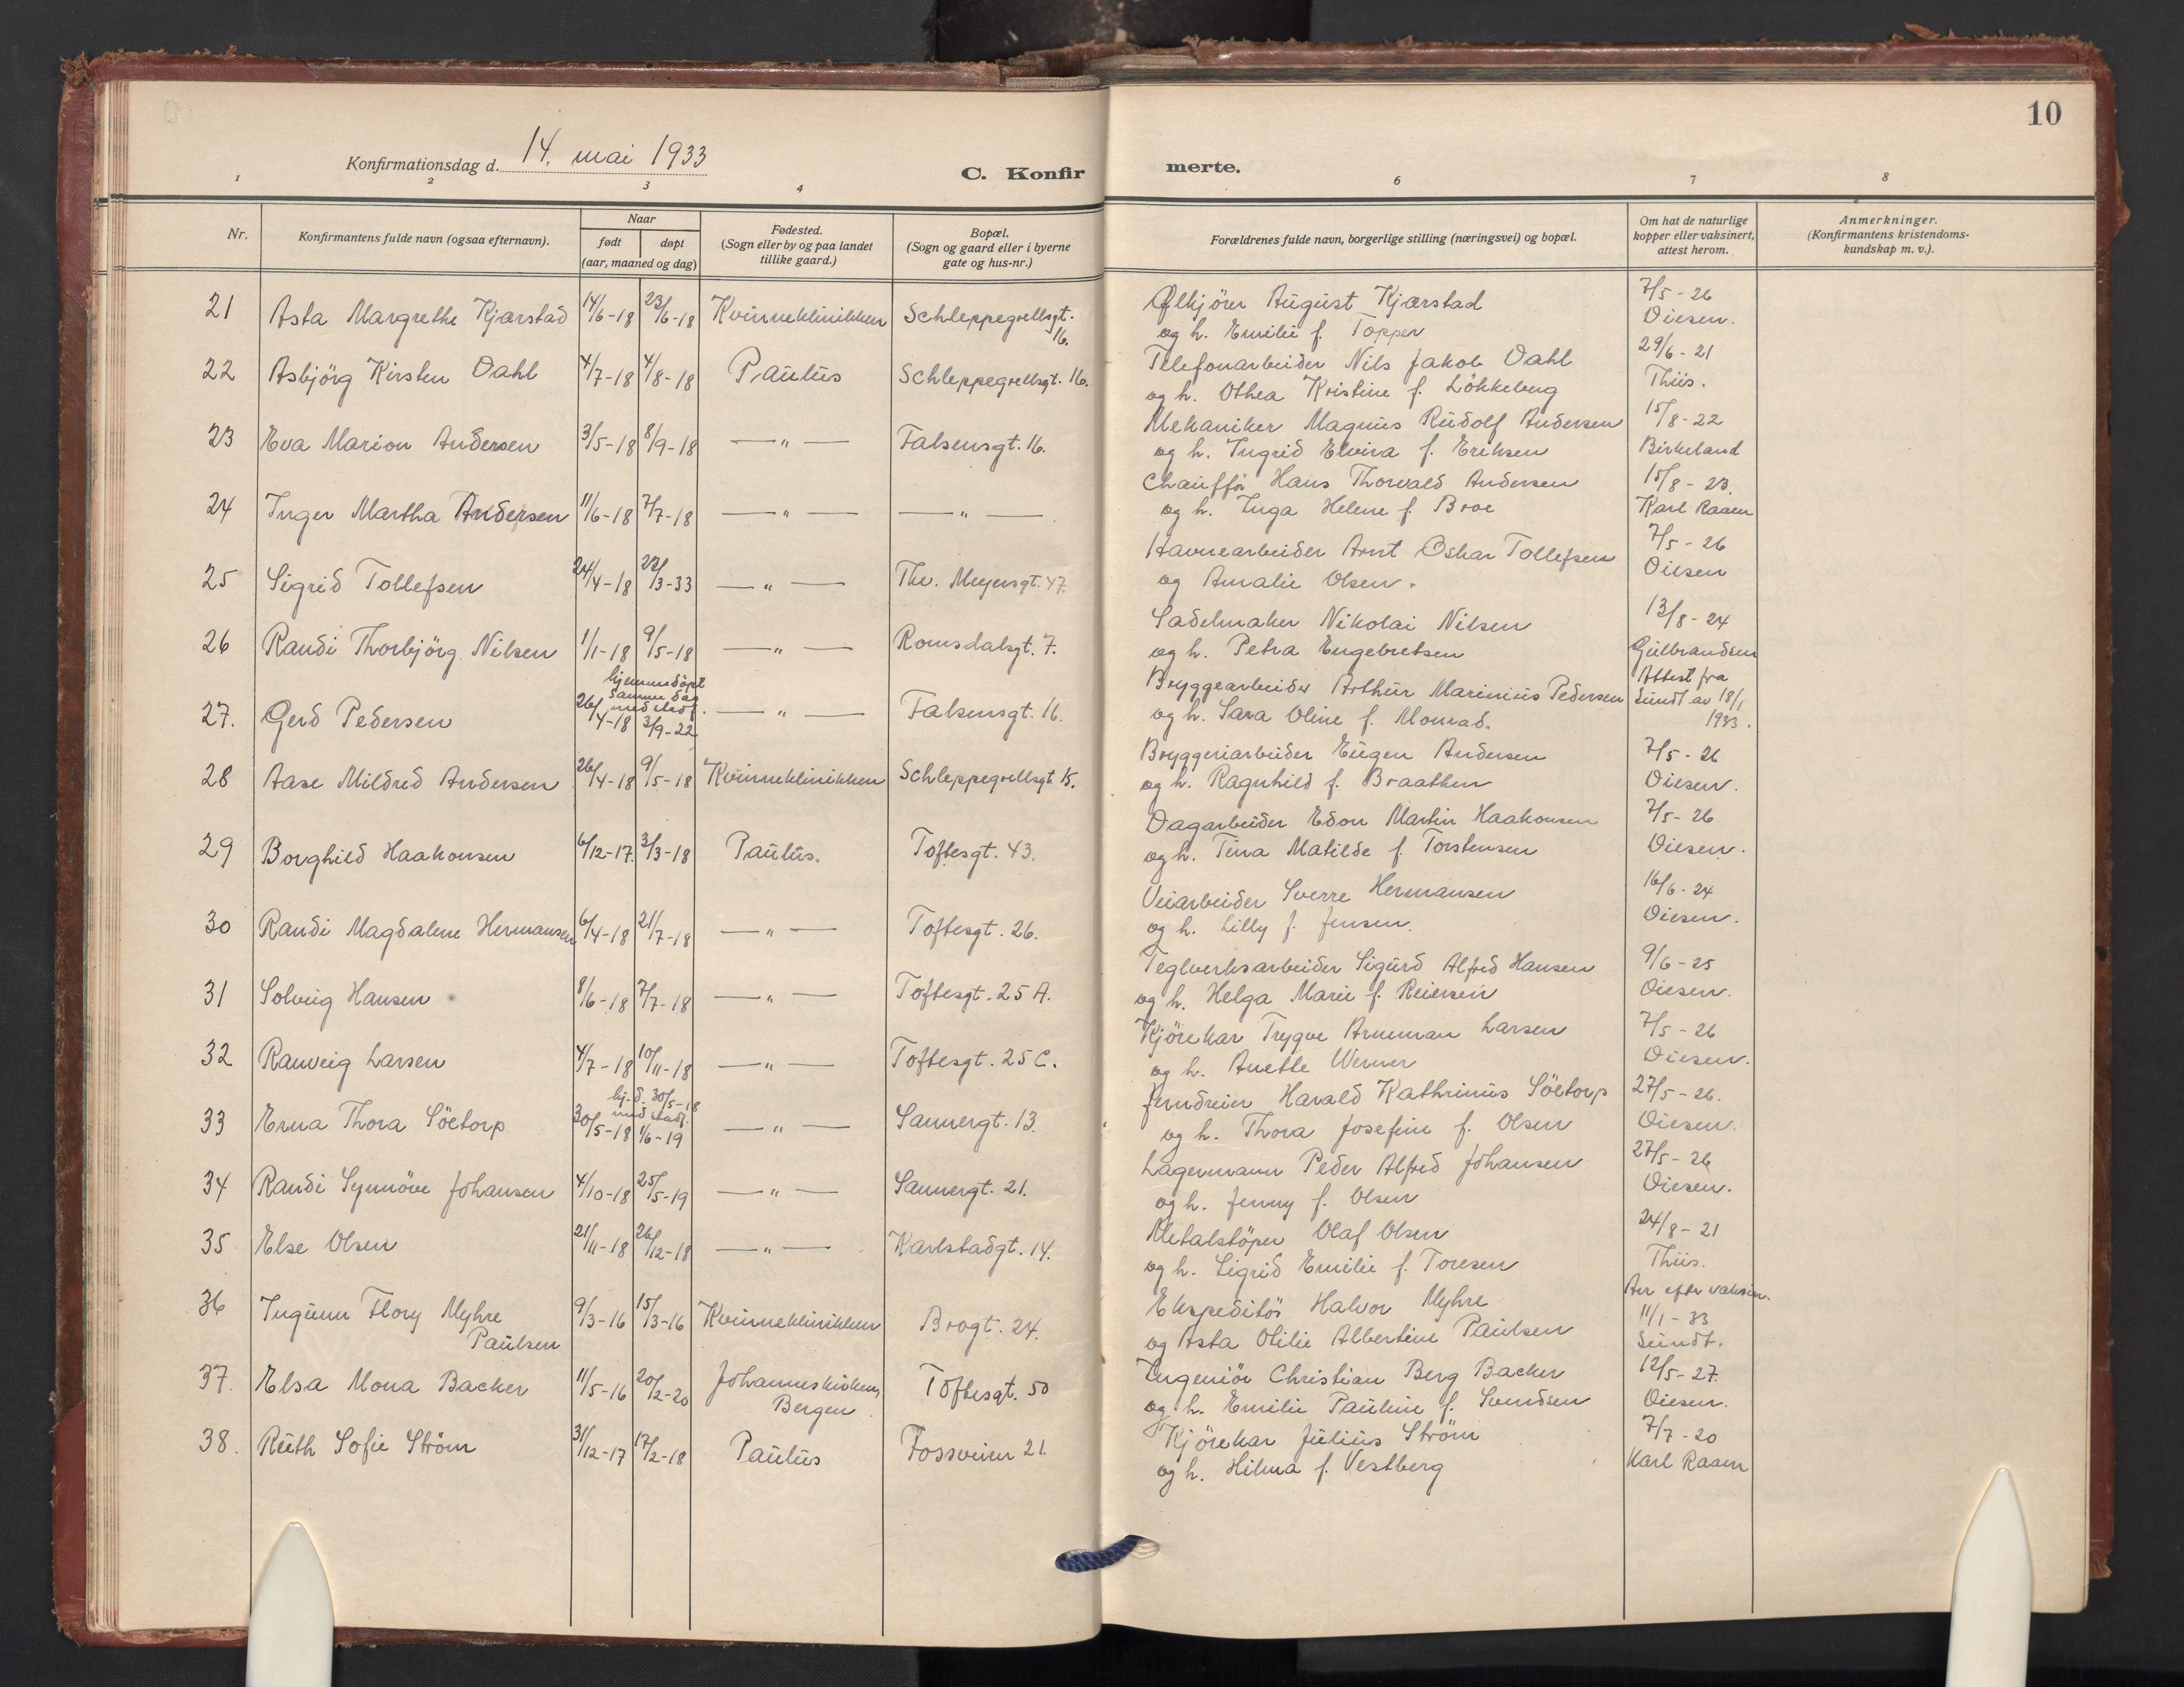 10
Konfirmationsdag d. 14. mai 1933
C. Konfirmerte.
1 2 3 4 6 7 8
Nr.
Konfirmantens fulde navn (ogsaa efternavn).
Naar
født døpt
(aar, maaned og dag)
Fødested.
(Sogn eller by og paa landet
tillike gaard.)
Bopæl.
(Sogn og gaard eller i byerne
gate og hus-nr.)
Forældrenes fulde navn, borgerlige stilling (næringsvei) og bopæl.
Om hat de naturlige
kopper eller vaksinert,
attest herom.
Anmerkninger.
(Konfirmantens kristendoms-
kundskap m. v.).
21 Asta Margrethe Kjærstad 14/6-18 23/6-18 Kvinneklinikken Schleppegrellsgt. 16. Ølkjörer August Kjærstad 7/5-26
og h. Emilie f. Topper Oiesen.
22 Asbjörg Kirsten Dahl 4/7-18 4/8-18 Paulus Schleppegrellsgt. 16. Telefonarbeider Nils Jakob Dahl 29/6-21
og h. Othea Kristine f. Lökkeberg Thiis.
23 Eva Marion Andersen 3/5-18 8/9-18 —„— Falsensgt. 16. Mekaniker Magnus Rudolf Andersen 15/8-22
og h. Ingrid Elvira f. Eriksen Birkeland
24 Inger Martha Andersen 11/6-18 7/7-18 —„— —„— Chauffør Hans Thorvald Andersen 15/8-23.
og h. Inga Helene f. Broe Karl Raaen
25 Sigrid Tollefsen 24/4-18 22/3-33 —„— Thv. Meyersgt. 47. Havnearbeider Arnt Oskar Tollefsen 7/5-26
og Amalie Olsen. Oiesen
26 Randi Thorbjörg Nilsen 1/1-18 9/5-18 —„— Romsdalsgt. 7. Sadelmaker Nikolai Nilsen 13/8-24
og h. Petra Engebretsen Gulbrandsen
27. Gerd Pedersen 26/4-18 hjemmedöpt samme dag med stadf. 3/9-22 —„— Falsensgt. 16. Bryggearbeider Arthur Marinius Pedersen Attest fra
og h. Sara Oline f. Monrad. Sundt av 18/1 1933.
28 Aase Mildred Andersen 26/4-18 9/5-18 Kvinneklinikken Schleppegrellsgt. 15. Bryggeriarbeider Eugen Andersen 7/5-26
og h. Ragnhild f. Braathen Oiesen.
29 Borghild Haakonsen 6/12-17. 3/3-18 Paulus. Toftesgt. 43. Dagarbeider Edon Martin Haakonsen 7/5-26
og h. Tina Matilde f. Torstensen Oiesen.
30 Randi Magdalene Hermansen 6/4-18 21/7-18 —„— Toftesgt. 26. Veiarbeider Sverre Hermansen 16/6-24
og h. Lilly f. Jensen. Oiesen.
31 Solveig Hansen 8/6-18 7/7-18 —„— Toftesgt. 25 A. Teglverksarbeider Sigurd Alfred Hansen 9/6-25
og h. Helga Marie f. Reiersen Oiesen.
32 Ranveig Larsen 4/7-18 10/11-18 —„— Toftesgt. 25 C. Kjörekar Trygve Larsen 7/5-26
og h. Anette Werner Oiesen.
33 Erna Thora Söetorp 30/5-18 hj.d. 30/5-18 med stadf. 1/6-19 —„— Sannergt. 13. Jerndreier Harald Kathrinus Söetorp 27/5-26.
og h. Thora Josefine f. Olsen Oiesen.
34 Randi Synnöve Johansen 4/10-18 25/5-19 —„— Sannergt. 21. Lagermann Peder Alfred Johansen 27/5-26
og h. Jenny f. Olsen Oiesen.
35 Else Olsen 21/11-18 26/12-18 —„— Karlstadgt. 14. Metalstöper Olaf Olsen 24/8-21
og h. Sigrid Emilie f. Toresen Thiis.
36 Ingunn Flory Myhre Paulsen 9/3-16 15/3-16 Kvinneklinikken Brogt. 24. Ekspeditör Halvor Myhre Arr efter vaksin.
og Asta Otilie Albertine Paulsen 11/1-33 Sundt.
37. Elsa Mona Backer 11/5-16 20/2-20 Johanneskirken, Bergen. Toftesgt. 50 Ingeniör Christian Berg Backer 12/5-27.
og h. Emilie Pauline f. Svendsen Oiesen.
38. Ruth Sofie Ström 31/12-17 17/2-18 Paulus Fossveien 21. Kjörekar Julius Ström 7/7-20
og h. Hilma f. Vestberg Karl Raaen